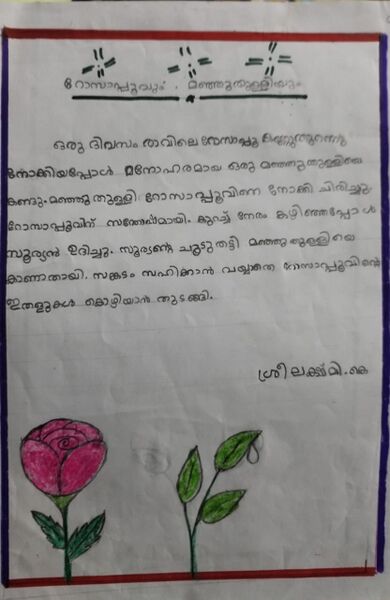 റോസാപ്പൂവും മഞ്ഞുതുള്ളിയും
ഒരു ദിവസം രാവിലെ റോസാപ്പൂ കണ്ണുതുറന്നു
നോക്കിയപ്പോൾ മനോഹരമായ ഒരു മഞ്ഞുതുള്ളിയെ
കണ്ടു. മഞ്ഞുതുള്ളി റോസാപ്പൂവിനെ നോക്കി ചിരിച്ചു.
റോസാപ്പൂവിന് സന്തോഷമായി. കുറച്ച് നേരം കഴിഞ്ഞപ്പോൾ
സൂര്യൻ ഉദിച്ചു. സൂര്യന്റെ ചൂടുതട്ടി മഞ്ഞുതുള്ളിയെ
കാണാതായി. സങ്കടം സഹിക്കാൻ വയ്യാതെ റോസാപ്പൂവിന്റെ
ഇതളുകൾ കൊഴിയാൻ തുടങ്ങി.
ശ്രീലക്ഷ്മി. കെ